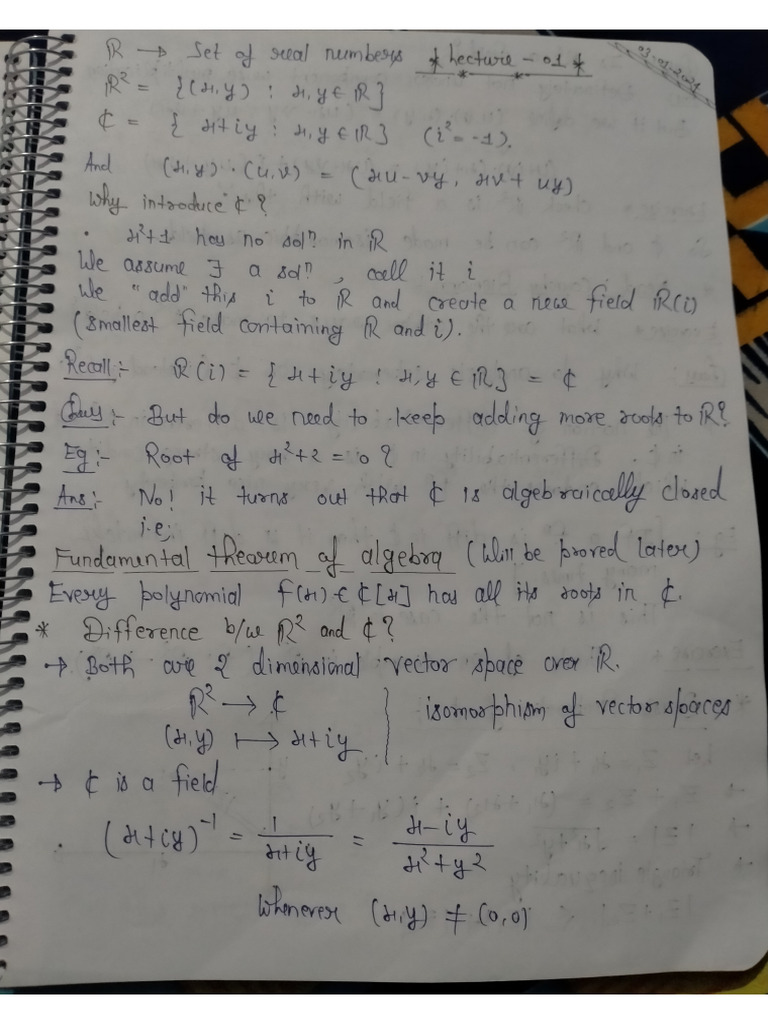 ℝ → Set of real numbers * Lecture - 01 *
03-01-2021
ℝ² = {(x,y) : x,y ∈ ℝ}
ℂ = { x+iy : x,y ∈ ℝ} (i² = -1).
And (x,y) · (u,v) = (xu - vy, xv + uy)
Why introduce ℂ?
• x²+1 has no solⁿ in ℝ
We assume ∃ a solⁿ, call it i
We "add" this i to ℝ and create a new field ℝ(i)
(smallest field containing ℝ and i).
Recall:- ℝ(i) = { x+iy : x,y ∈ ℝ} = ℂ.
Ques:- But do we need to keep adding more roots to ℝ?
Eg:- Root of x²+2 = 0 ?
Ans:- No! it turns out that ℂ is algebraically closed
i.e;
Fundamental theorem of algebra (Will be proved later)
Every polynomial f(x) ∈ ℂ[x] has all its roots in ℂ.
* Difference b/w ℝ² and ℂ?
→ Both are 2 dimensional vector space over ℝ.
ℝ² → ℂ } isomorphism of vector spaces
(x,y) ↦ x+iy
→ ℂ is a field
• (x+iy)⁻¹ = 1/(x+iy) = (x-iy)/(x²+y²)
Whenever (x,y) ≠ (0,0)